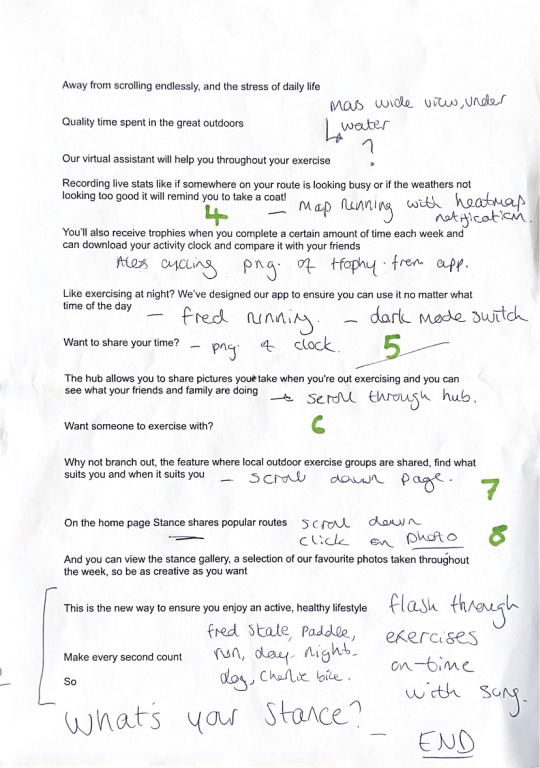 Away from scrolling endlessly, and the stress of daily life
mas wide view, under
Quality time spent in the great outdoors
water
?
Our virtual assistant will help you throughout your exercise
Recording live stats like if somewhere on your route is looking busy or if the weathers not
looking too good it will remind you to take a coat!
4 – Map running with heatmap
notification.
You'll also receive trophies when you complete a certain amount of time each week and
can download your activity clock and compare it with your friends
Alex cycling png. of trophy. from app.
Like exercising at night? We've designed our app to ensure you can use it no matter what
time of the day
– fred running. – dark mode switch
Want to share your time? – png. of clock. 5
The hub allows you to share pictures you take when you're out exercising and you can
see what your friends and family are doing
scroll through hub.
Want someone to exercise with? 6
Why not branch out, the feature where local outdoor exercise groups are shared, find what
suits you and when it suits you – scroll down page.
7
On the home page Stance shares popular routes scroll down
click on photo 8
And you can view the stance gallery, a selection of our favourite photos taken throughout
the week, so be as creative as you want
This is the new way to ensure you enjoy an active, healthy lifestyle flash through
exercises
on-time
with song.
fred skate, paddle,
Make every second count run, day- night-
So day, Charlie bike.
What's your Stance? –
END